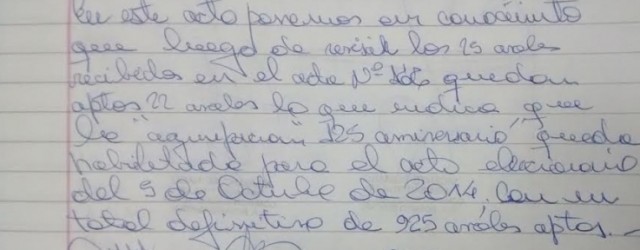 En este acto ponemos en conocimiento
que luego de revisar los 25 avales
recibidos en el acta Nº 106 quedan
aptos 22 avales lo que indica que
la "agrupación" 125 aniversario" queda
habilitada para el acto eleccionario
del 9 de Octubre de 2014. Con un
total definitivo de 925 avales aptos.